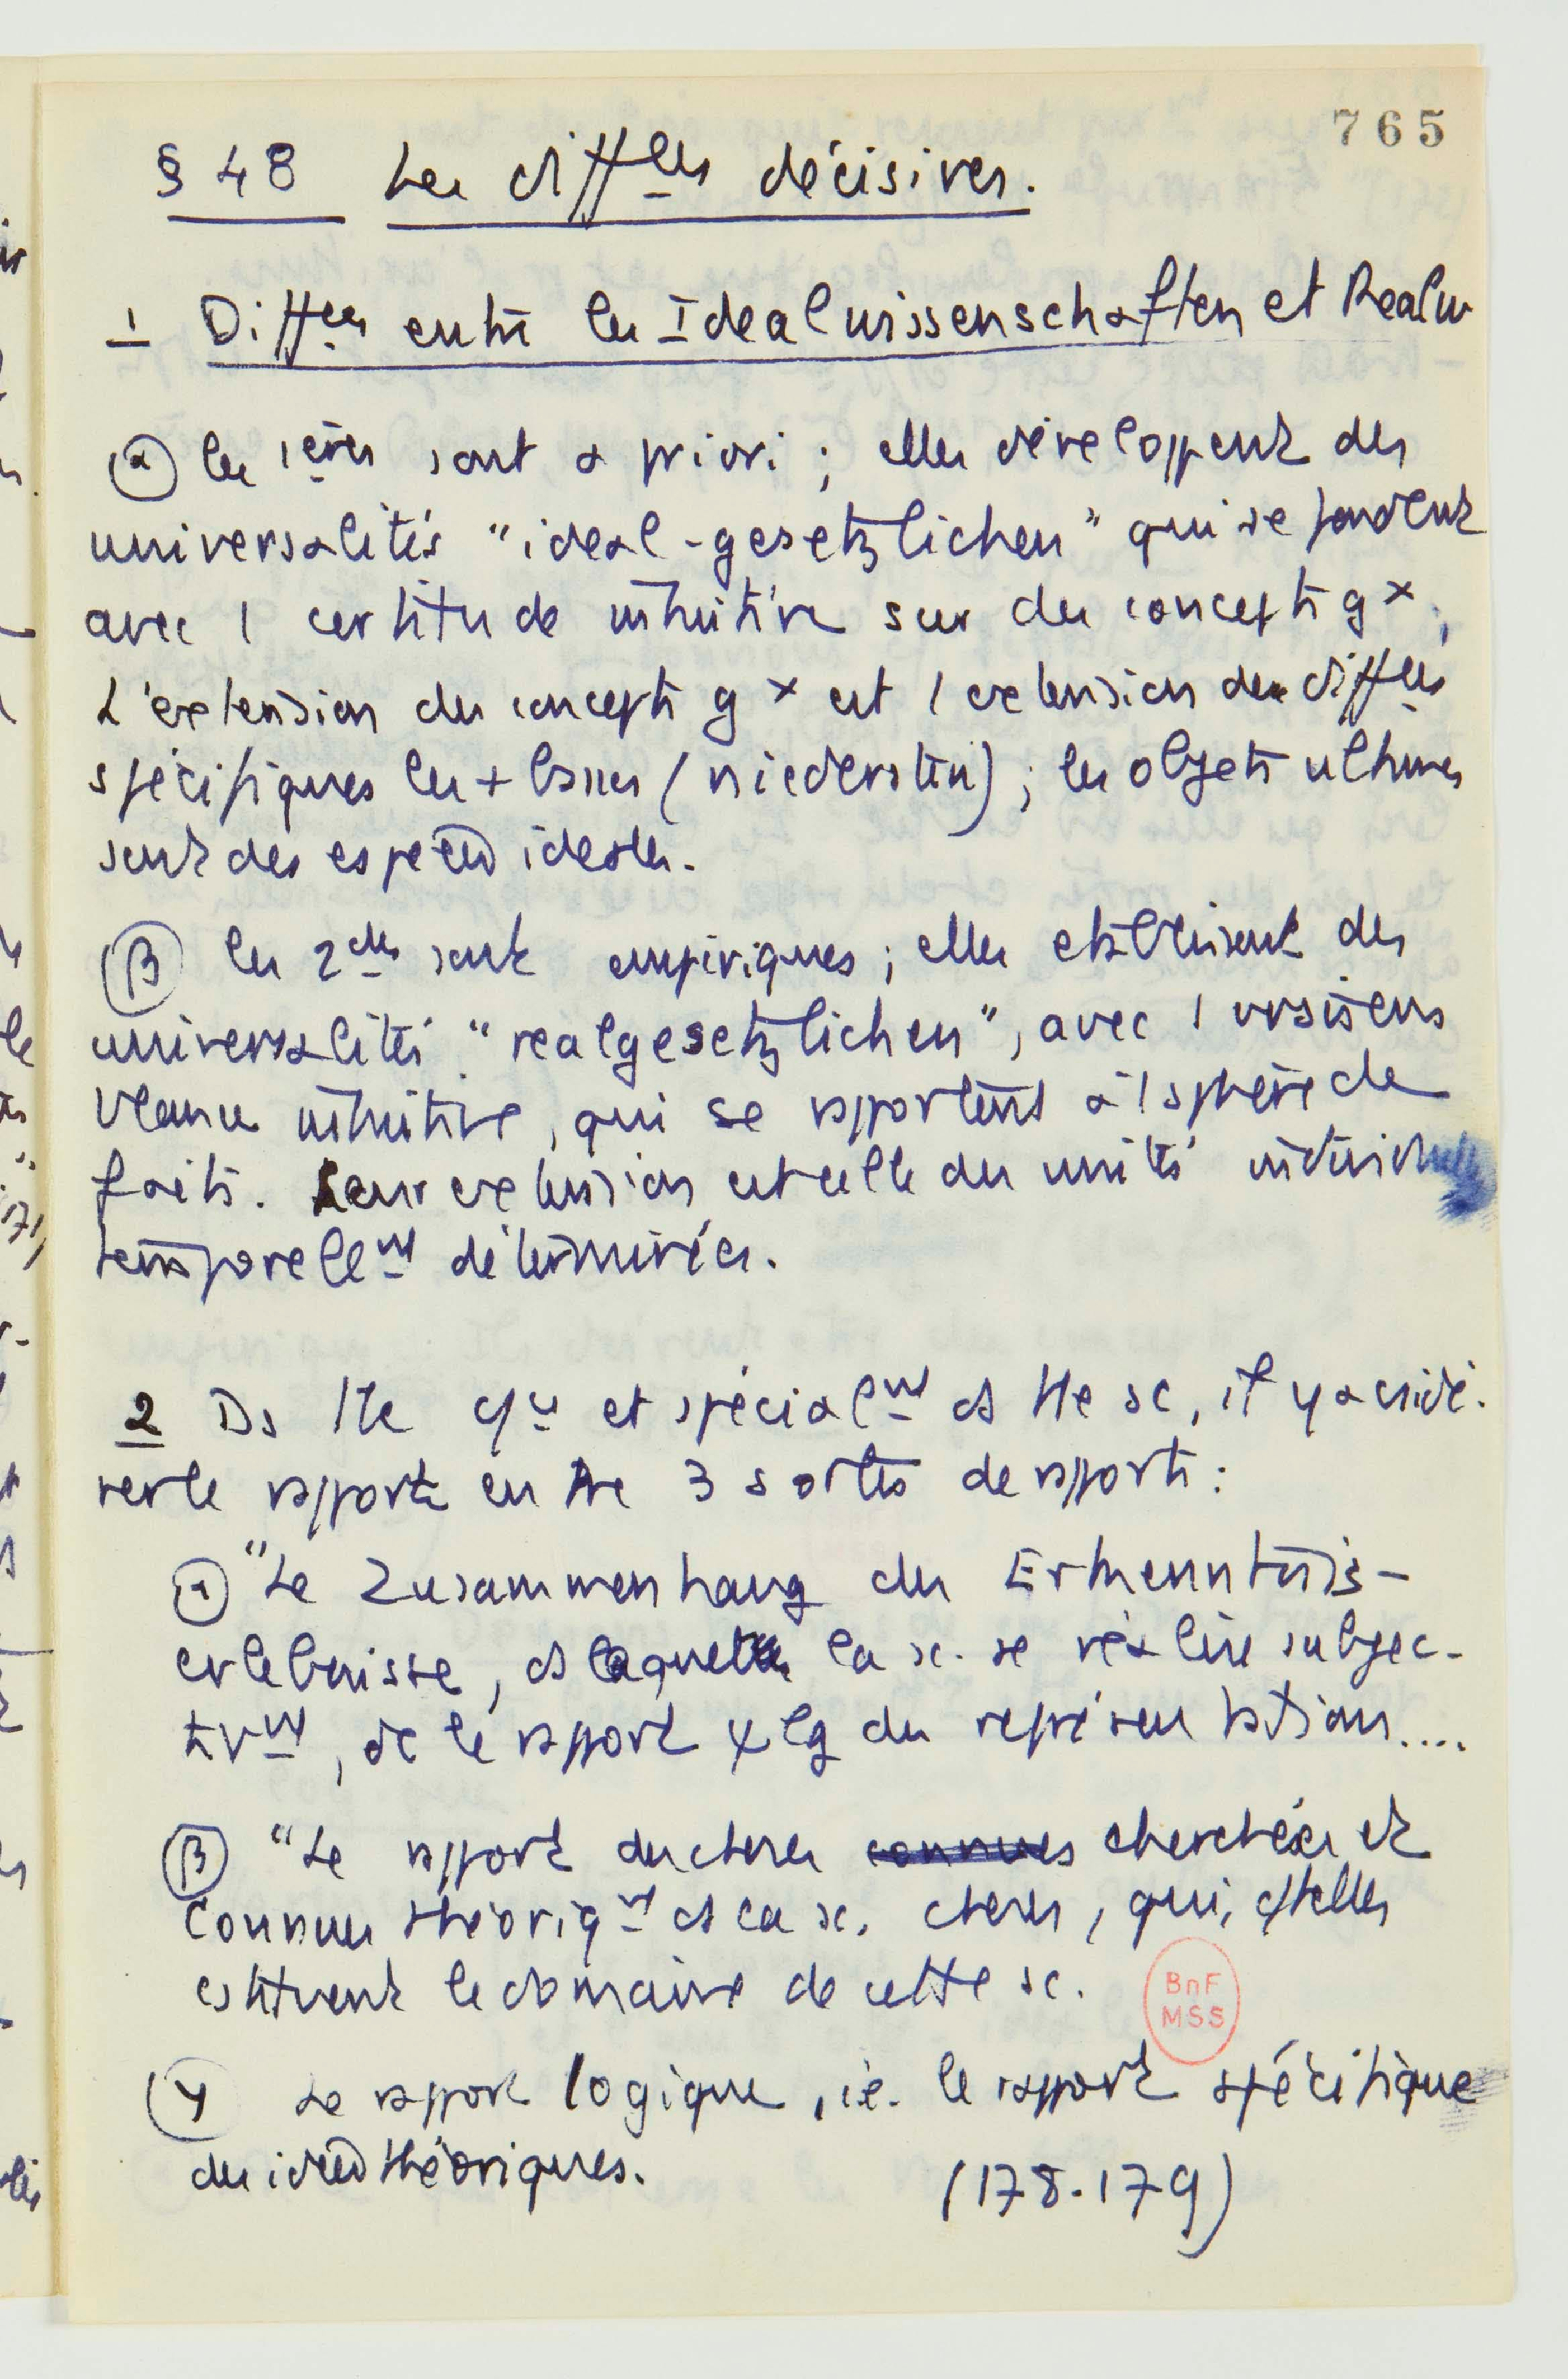 765
§ 48 Les diffces décisives.
1 Diffces entre les Idealwissenschaften et Realw
α les 1ères sont a priori ; elles développent des
universalités "ideal-gesetzlichen" qui se fondent
avec 1 certitude intuitive sur des concepts gx ;
L'extension des concepts gx est l'extension des diffces
spécifiques les + basses (niedersten) ; les objets ultimes
sont des espèces idéales.
β les 2des sont empiriques ; elles établissent des
universalités "realgesetzlichen", avec 1 vraisem
blance intuitive, qui se rapportent à 1 sphère de
faits. Leur extension est celle des unités individuelles
temporellmt déterminées.
2 Ds tte et spécialmt ds tte sc, il y a csidé-
rer le rapport entre 3 sortes de rapports :
α "Le Zusammenhang der Erkenntnis-
erlebnisse, ds laquelle la sc. se réalise subjec-
tivmt, dc le rapport ψlg des représentations....
β "Le rapport des choses connues cherchées et
connues théoriqmt ds la sc. choses, qui, cme telles
cstituent le domaine de cette sc.
BnF
MSS
γ Le rapport logique, i.e. le rapport spécifique
des idées théoriques.
(178-179)